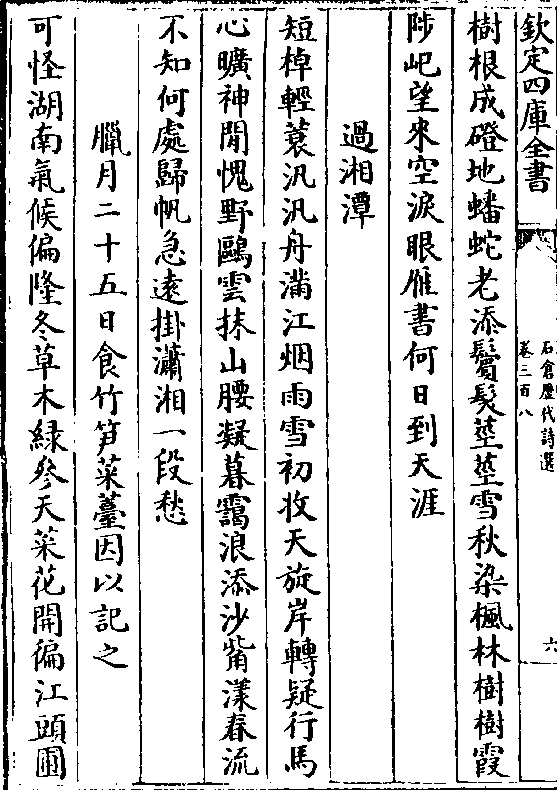 欽定四庫全書
石倉歷代詩選
卷三百八
六
樹根成磴地蟠蛇老添鬢髮莖莖雪秋染楓林樹樹霞
陟屺望來空淚眼雁書何日到天涯
過湘潭
短棹輕蓑汎汎舟滿江烟雨雪初收天旋岸轉疑行馬
心曠神閒愧野鷗雲抹山腰凝暮靄浪添沙觜漾春流
不知何處歸帆急遠掛瀟湘一段愁
臘月二十五日食竹笋菜薹因以記之
可怪湖南氣候偏隆冬草木緑參天菜花開徧江頭圃